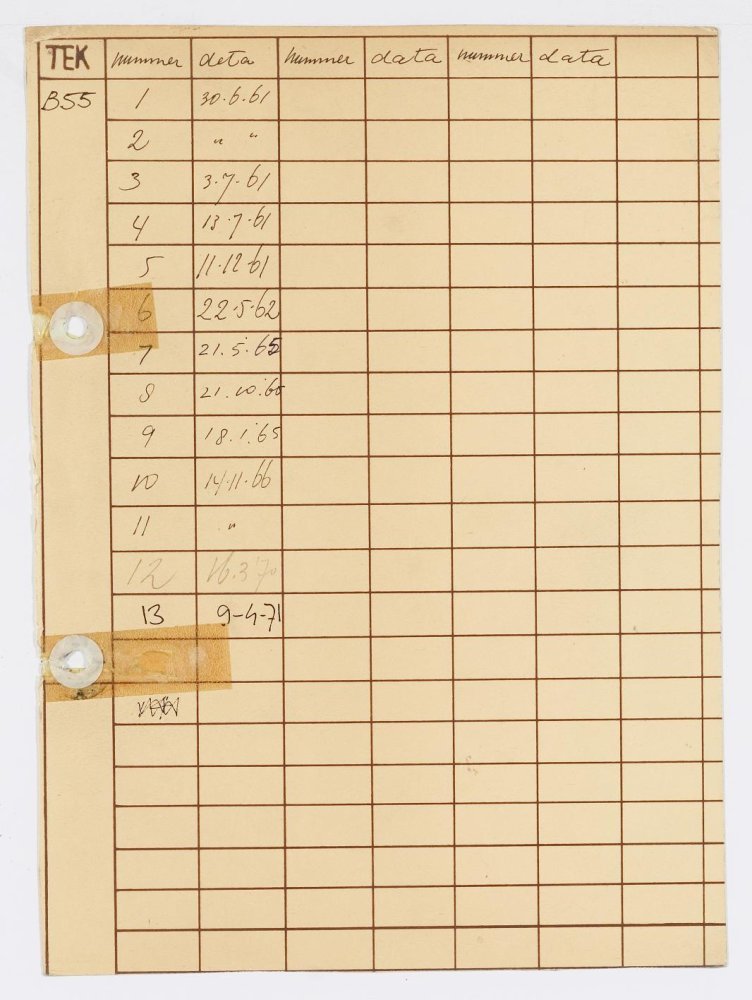 TEK nummer data nummer data nummer data
B55 1 30.6.61
2 " "
3 3.7.61
4 13.7.61
5 11.12.61
6 22.5.62
7 21.5.65
8 21.10.65
9 18.1.65
10 14.11.66
11 "
12 16.3.70
13 9-4-71